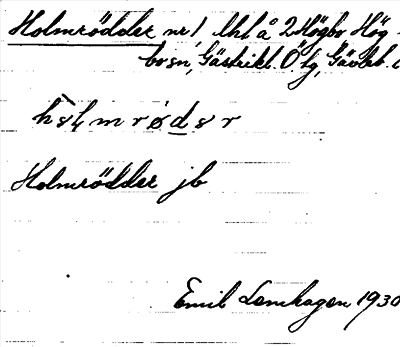 Holmrödder nr 1 lht å 2 Högbo Hög
bo sn, Gästrikl. Ö lg, Gävleb. l
Holmrödder jb
Emil Lemhagen 1930